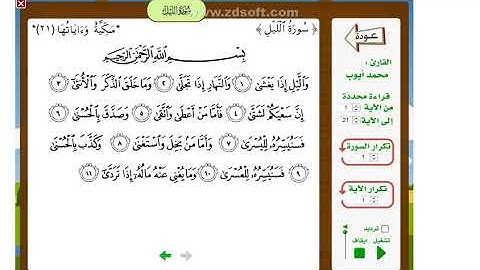 سورة الليل
www.zdsoft.com
﴿ سُورَةُ اللَّيْلِ ﴾ *مَكِّيَّةٌ وَءَايَاتُهَا (٢١)*
بِسْمِ اللَّهِ الرَّحْمَٰنِ الرَّحِيمِ
وَالَّيْلِ إِذَا يَغْشَىٰ ١ وَالنَّهَارِ إِذَا تَجَلَّىٰ ٢ وَمَا خَلَقَ الذَّكَرَ وَالْأُنثَىٰ ٣
إِنَّ سَعْيَكُمْ لَشَتَّىٰ ٤ فَأَمَّا مَنْ أَعْطَىٰ وَاتَّقَىٰ ٥ وَصَدَّقَ بِالْحُسْنَىٰ ٦
فَسَنُيَسِّرُهُ لِلْيُسْرَىٰ ٧ وَأَمَّا مَن بَخِلَ وَاسْتَغْنَىٰ ٨ وَكَذَّبَ بِالْحُسْنَىٰ
٩ فَسَنُيَسِّرُهُ لِلْعُسْرَىٰ ١٠ وَمَا يُغْنِي عَنْهُ مَالُهُ إِذَا تَرَدَّىٰ ١١
عودة
القارئ :
محمد أيوب
قراءة محددة
من الآية 1
إلى الآية 21
تكرار السورة
1
تكرار الآية
1
ترديد
تشغيل إيقاف